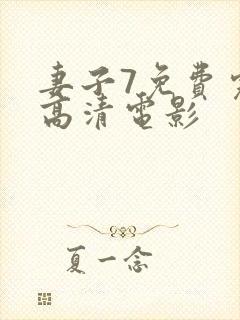 妻子7免费
高清电影
夏一念